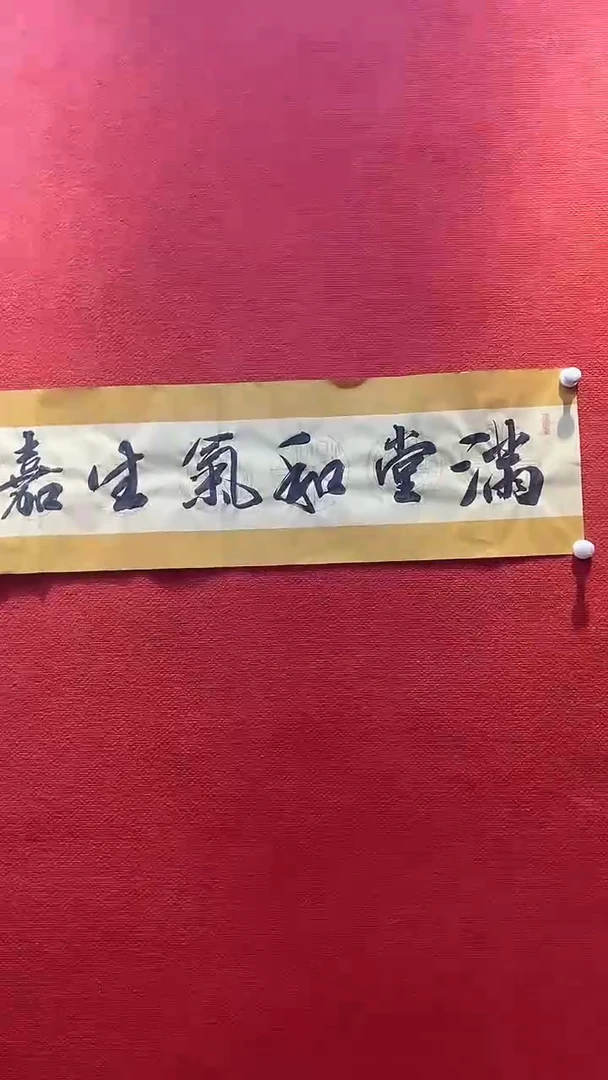 满堂和氣生嘉